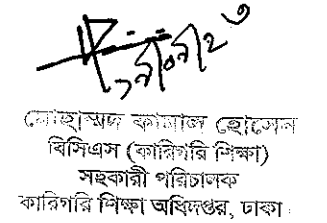 মোহাম্মদ কামাল হোসেন
বিসিএস (কারিগরি শিক্ষা)
সহকারী পরিচালক
কারিগরি শিক্ষা অধিদপ্তর, ঢাকা।